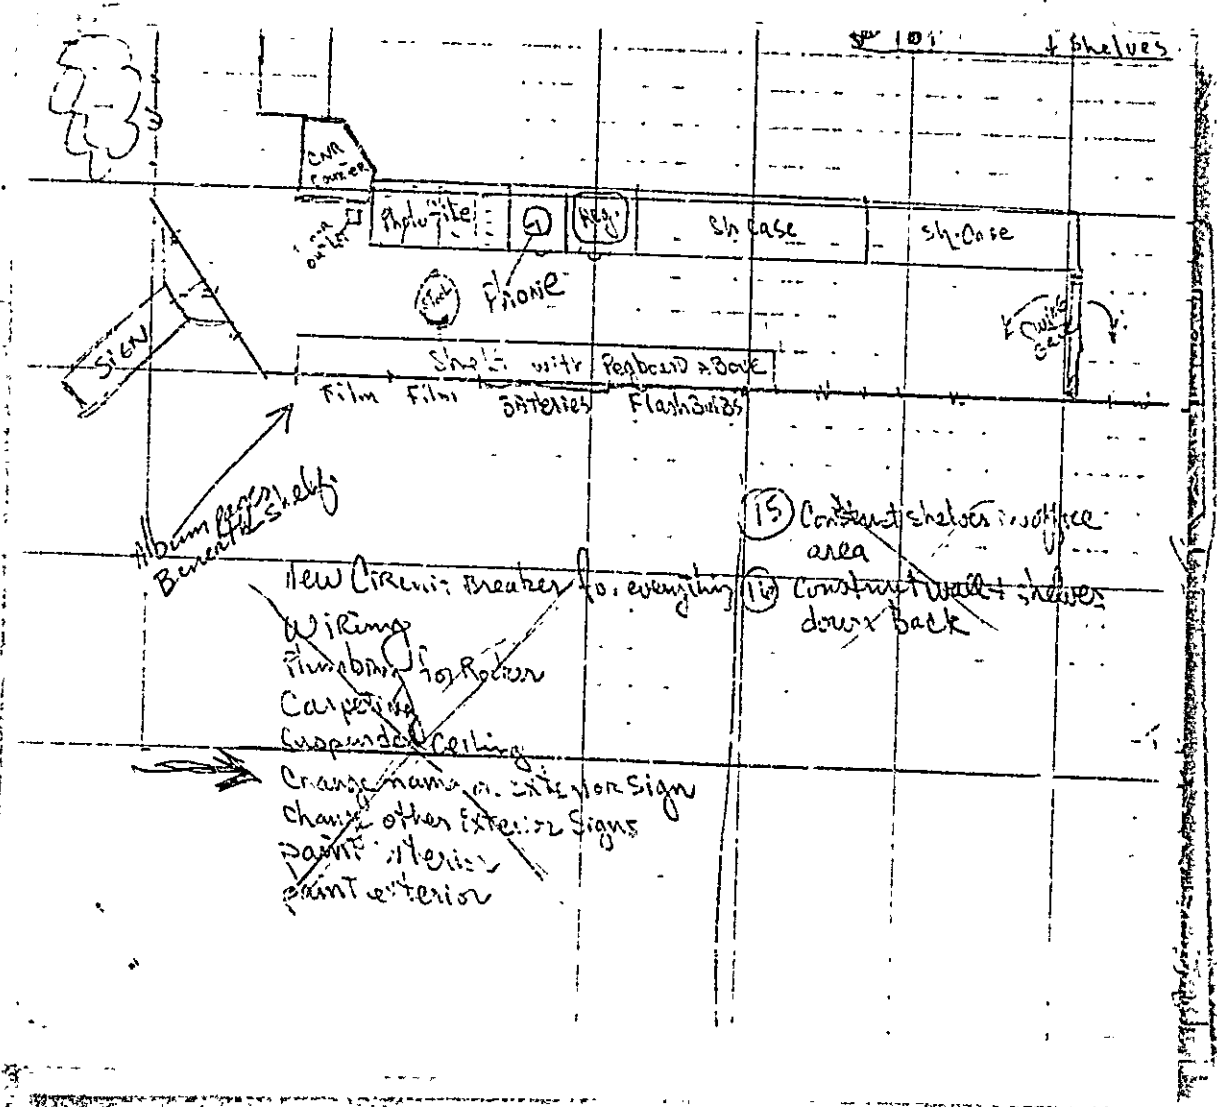 101 + Shelves
CNR
Counter
Photo-File
Reg.
Sh Case
Sh. Case
outlet
Stool
Phone
Swing
SIGN
Shelf with Pegboard Above
Film Film Batteries FlashBulbs
Album pages
Beneath Shelf
15 Construct shelves in office
area
16 Construct wall + shelves
down back
New Circuit Breaker for everything
Wiring
Plumbing for
Carpeting
Suspended Ceiling
Change name on exterior Sign
Change other Exterior Signs
paint interior
paint exterior